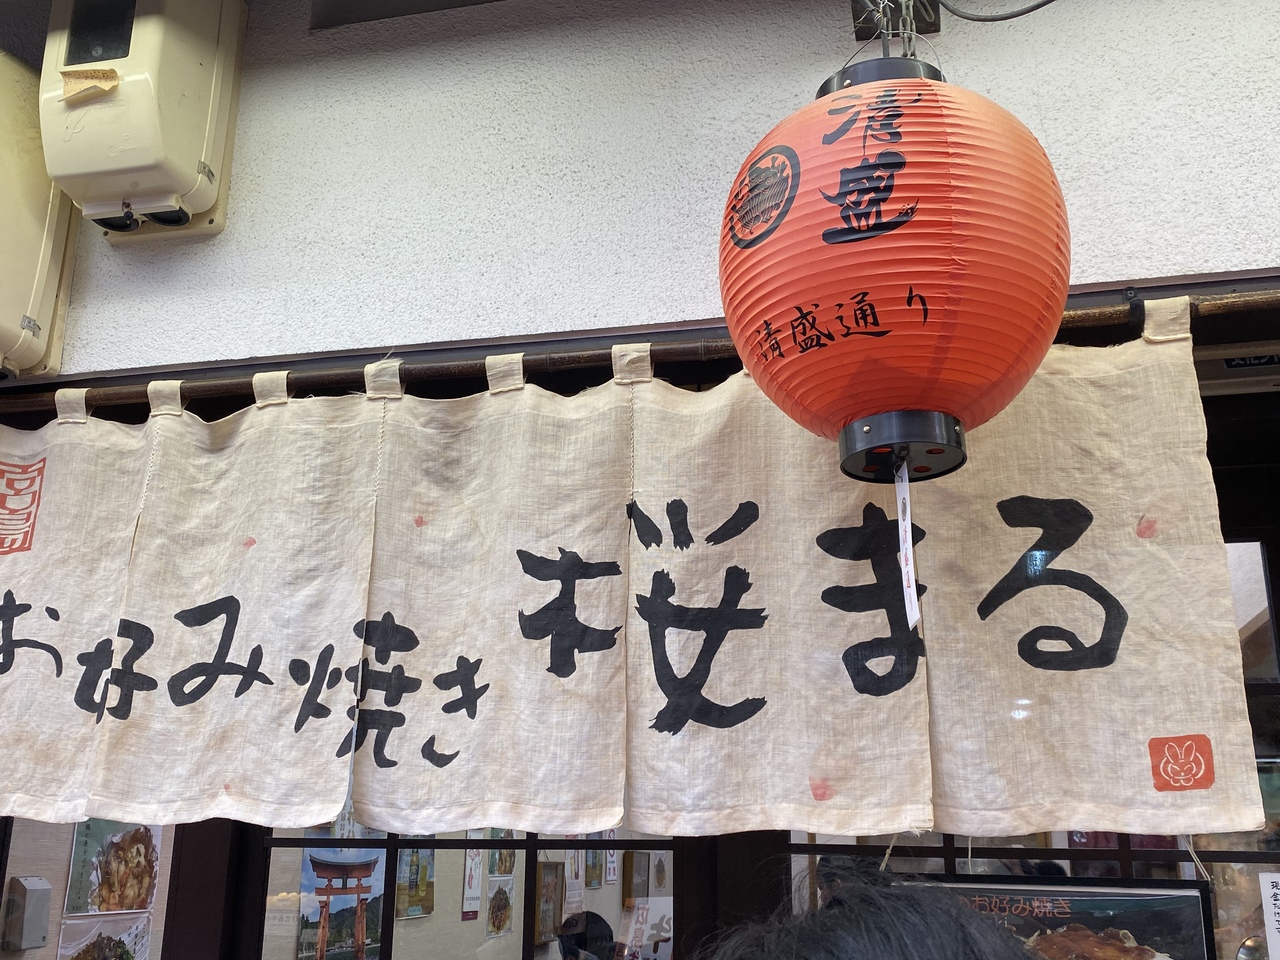 清盛
清盛通り
お好み焼き 桜まる
のお好み焼き